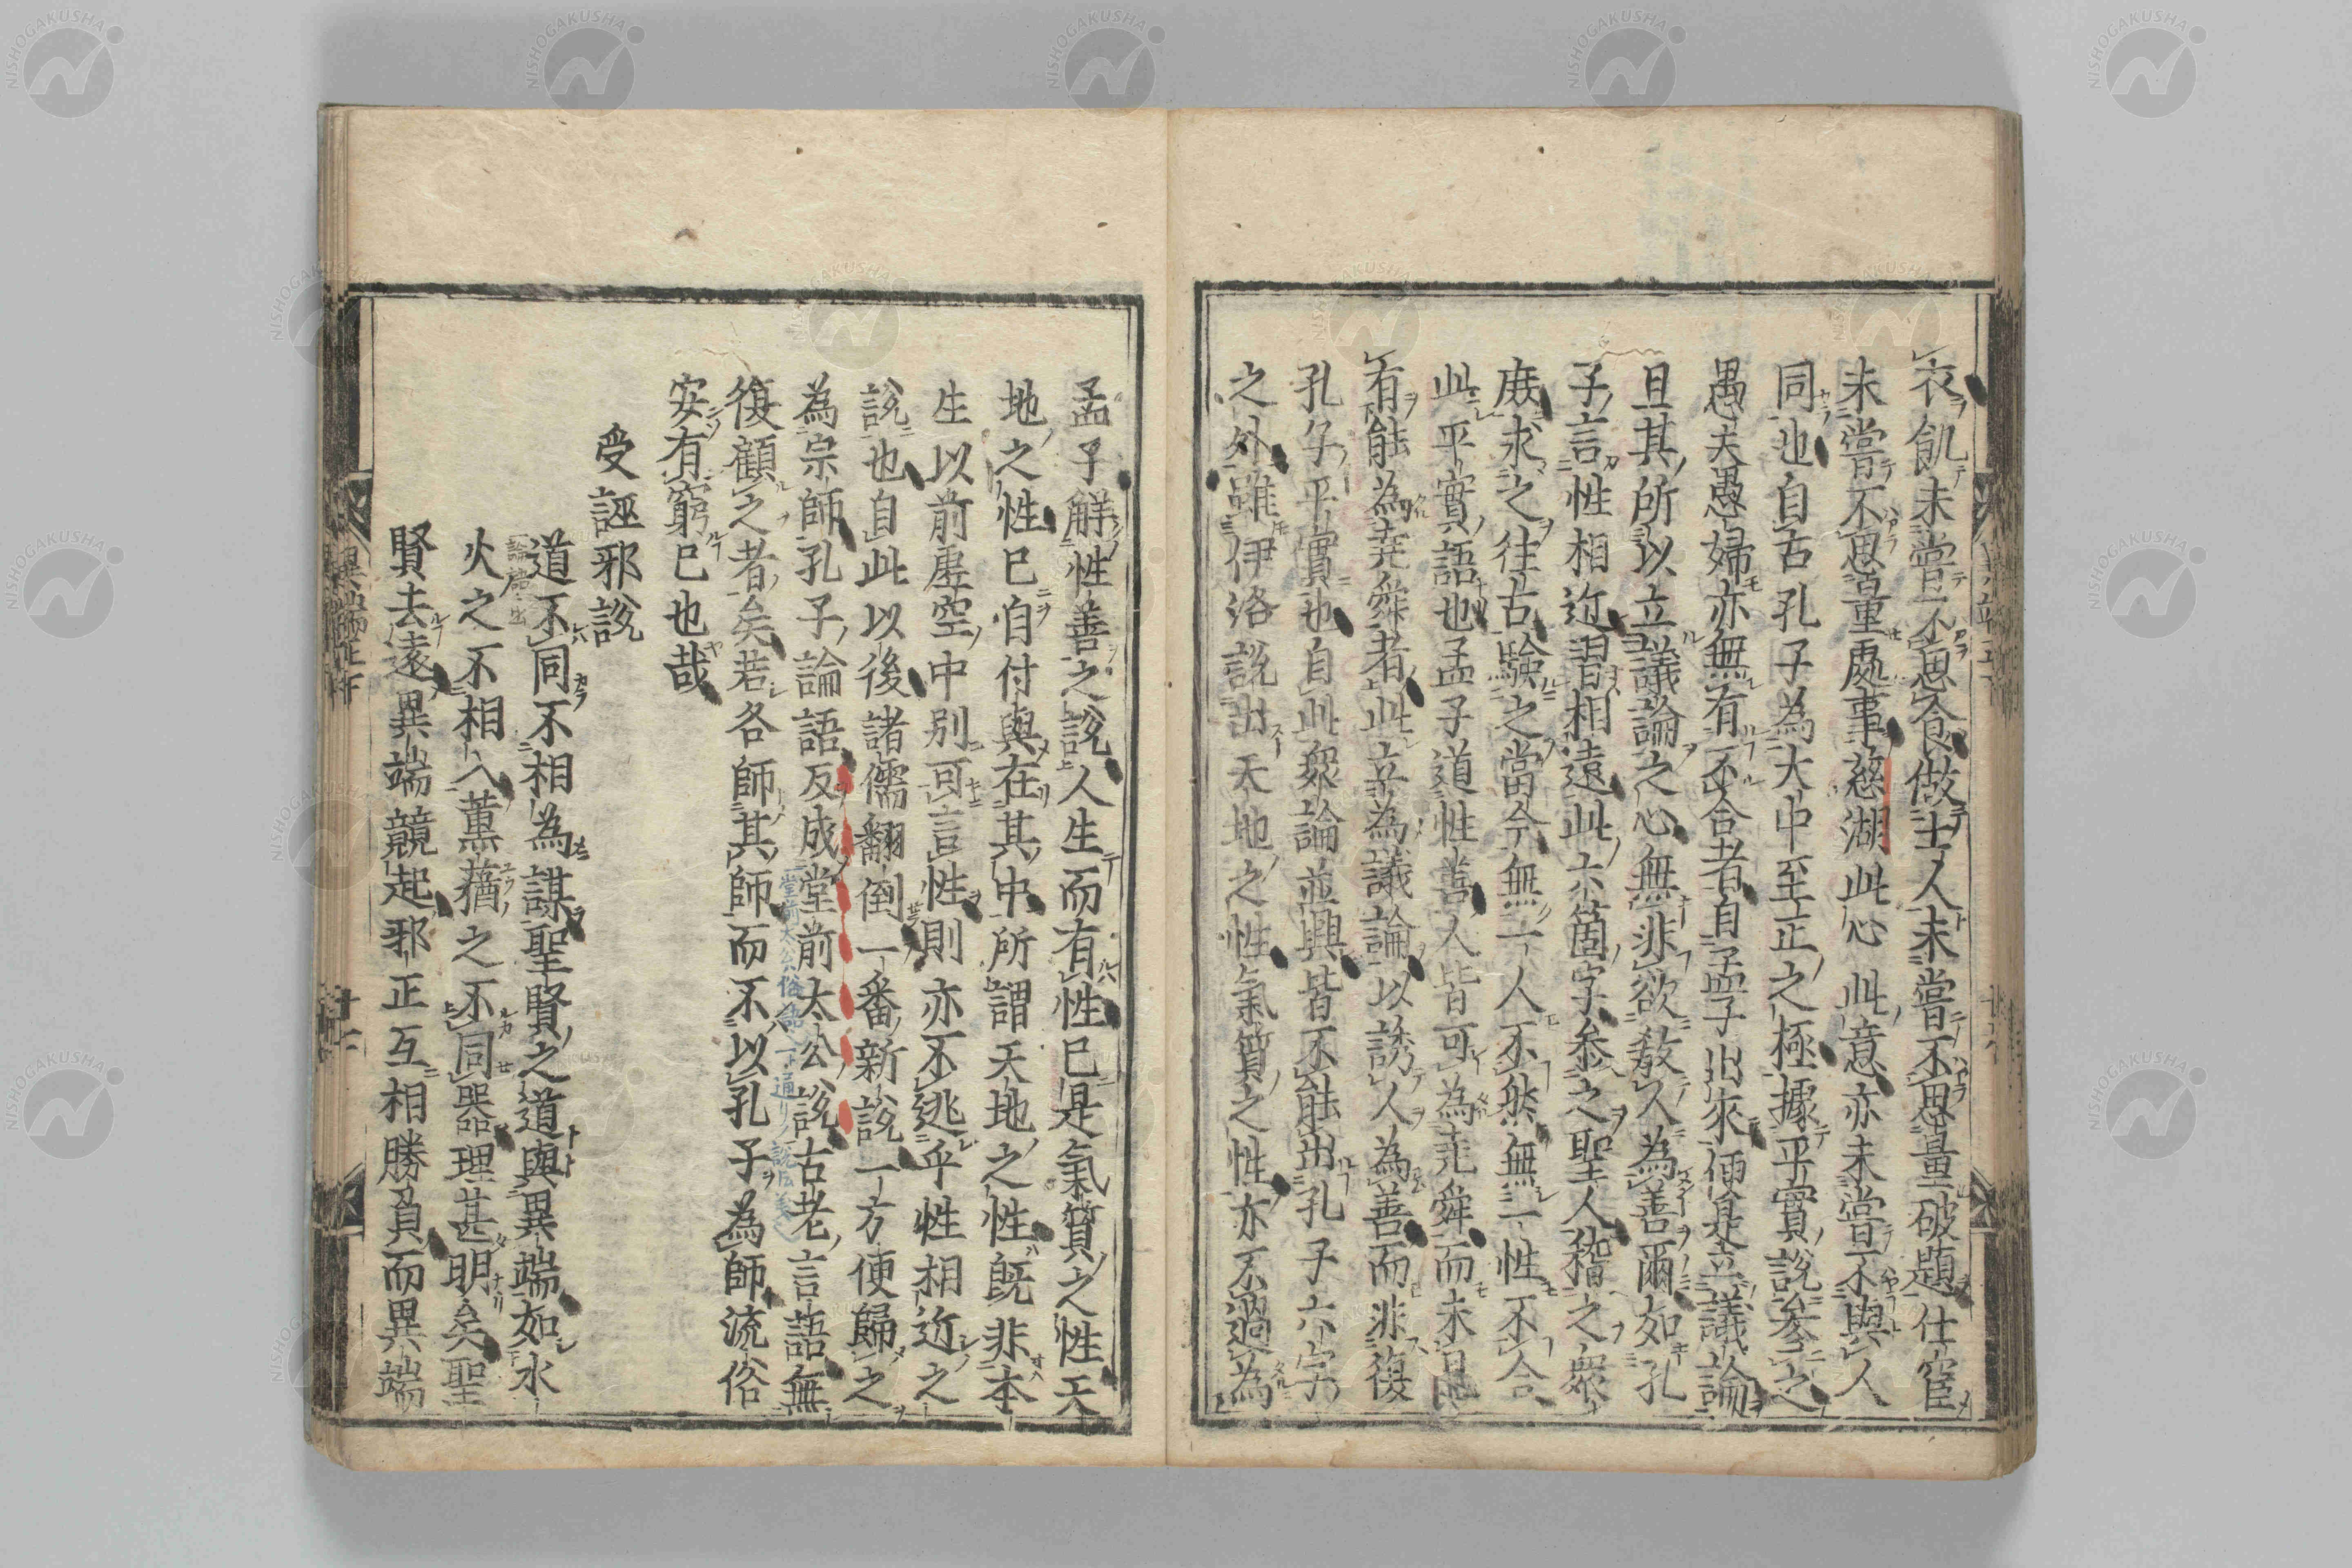 衣飢未嘗不思食做士人未嘗不思量破題仕宦
未嘗不思量處事慈湖此心此意亦未嘗不與人
同也自古孔子為大中至正之極據平實說參之
愚夫愚婦亦無有不合者自孟子出來便是立議論
且其所以立議論之心無非欲教人為善爾如孔
子言性相近習相遠此六箇字參之聖人稽之衆
庶求之往古驗之當今無一人不然無一性不合
此平實語也孟子道性善人皆可為堯舜而未見
有能為堯舜者此立為議論以誘人為善而非復
孔子平實也自此衆論並興皆不能出孔子六字
之外雖伊洛說出天地之性氣質之性亦不過為
孟子解性善之說人生而有性已是氣質之性天
地之性已自付與在其中所謂天地之性既非本
生以前虛空中別可言性則亦不逃乎性相近之
說也自此以後諸儒翻倒一番新說一方便歸之
為宗師孔子論語反成堂前太公說古老言語無
復顧之者矣若各師其師而不以孔子為師流俗
安有窮已也哉
受誣邪說
道不同不相為謀聖賢之道與異端如水
火之不相入薰蕕之不同器理甚明矣聖
賢去遠異端競起邪正互相勝負而異端
異端辯正下
NISHOGAKUSHA